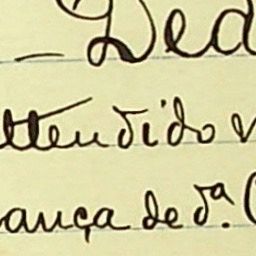 — Ded
ttendido v
ança de d.ª